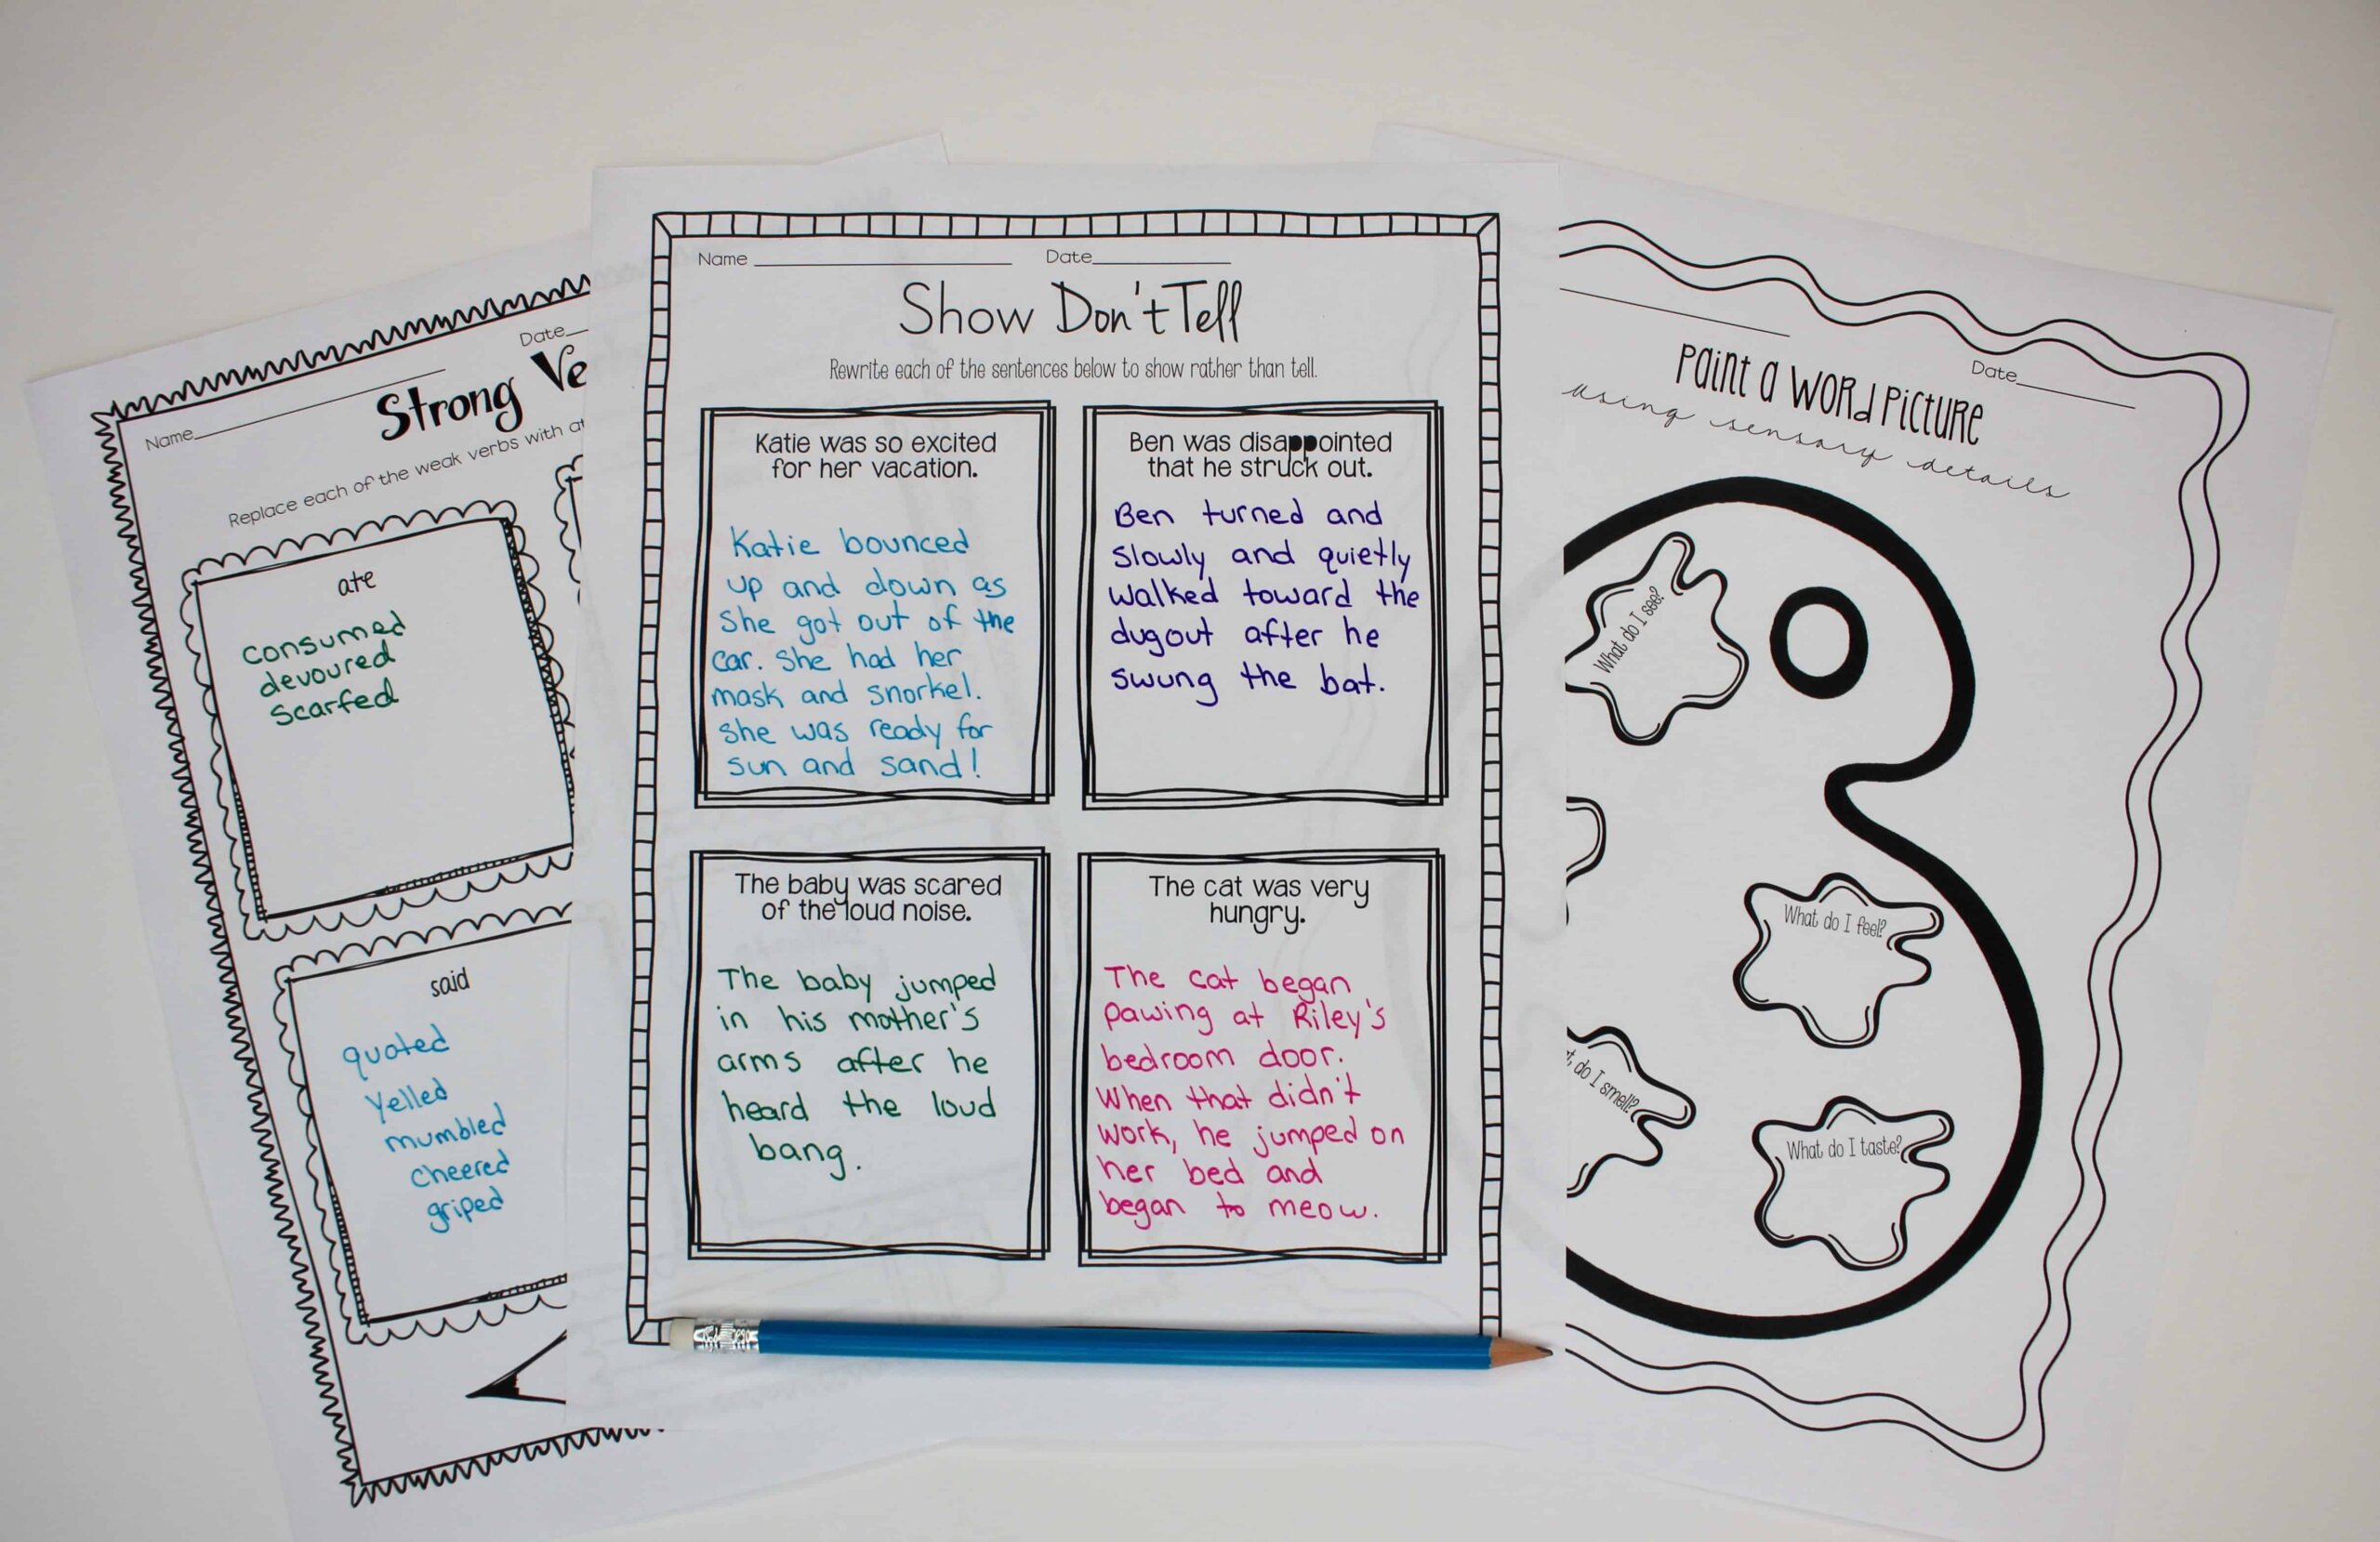 Name
Date
Strong
Replace each of the weak verbs with
ate
consumed
devoured
scarfed
said
quoted
Yelled
mumbled
cheered
griped
Name
Date
Show Don't Tell
Rewrite each of the sentences below to show rather than tell.
Katie was so excited
for her vacation.
Katie bounced
up and down as
she got out of the
car. She had her
mask and snorkel.
She was ready for
sun and sand!
Ben was disappointed
that he struck out.
Ben turned and
slowly and quietly
walked toward the
dugout after he
swung the bat.
The baby was scared
of the loud noise.
The baby jumped
in his mother's
arms after he
heard the loud
bang.
The cat was very
hungry.
The cat began
pawing at Riley's
bedroom door.
When that didn't
work, he jumped on
her bed and
began to meow.
Date
Paint a Word Picture
using sensory details
What do I see?
What do I feel?
do I smell?
What do I taste?